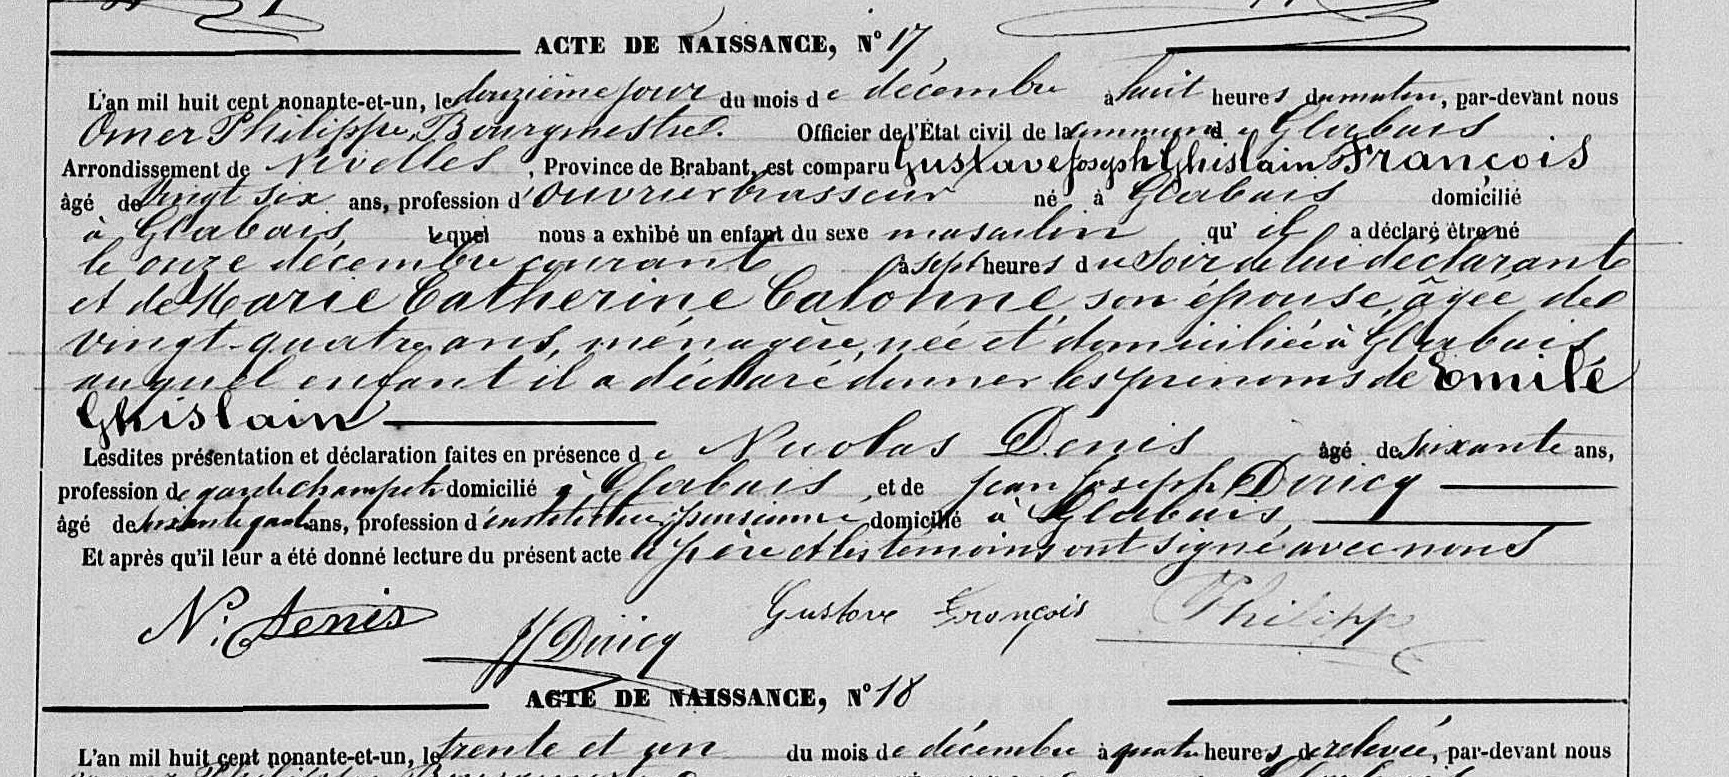 ACTE DE NAISSANCE, N° 17
L'an mil huit cent nonante-et-un, le douzième jour du mois de décembre à huit heures du matin, par-devant nous
Omer Philippe, Bourgmestre. Officier de l'État civil de la commune de Glabais
Arrondissement de Nivelles, Province de Brabant, est comparu Gustave Joseph Ghislain François
âgé de vingt six ans, profession d'ouvrier brasseur né à Glabais domicilié
à Glabais, lequel nous a exhibé un enfant du sexe masculin qu'il a déclaré être né
le onze décembre courant à sept heures du soir de lui déclarant
et de Marie Catherine Calonne, son épouse, âgée de
vingt-quatre ans, ménagère, née et domiciliée à Glabais
auquel enfant il a déclaré donner les prénoms de Emile
Ghislain
Lesdites présentation et déclaration faites en présence de Nicolas Denis âgé de soixante ans,
profession de garde champêtre domicilié à Glabais, et de Jean Joseph Dricq
âgé de ans, profession d'instituteur pensionné, domicilié à Glabais,
Et après qu'il leur a été donné lecture du présent acte le père et les témoins ont signé avec nous
N. Denis JJ Dricq Gustave François Philippe
ACTE DE NAISSANCE, N° 18
L'an mil huit cent nonante-et-un, le trente et un du mois de décembre à quatre heures de relevée, par-devant nous